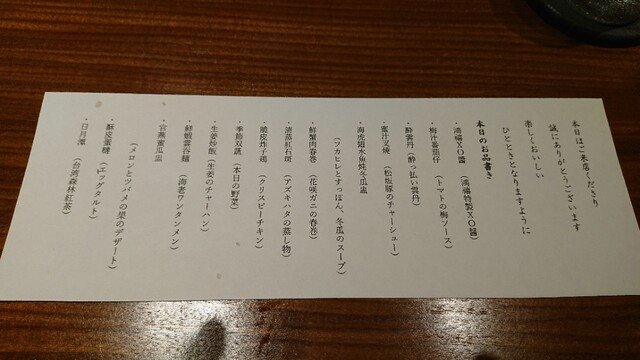 本日はご来店くださり
誠にありがとうございます
楽しくおいしい
ひとときとなりますように
本日のお品書き
・鴻禧XO醤 (鴻禧特製XO醤)
・梅汁番茄仔 (トマトの梅ソース)
・酔雲丹 (酔っ払い雲丹)
・蜜汁叉焼 (松坂豚のチャーシュー)
・海虎翅水魚炖冬瓜盅
(フカヒレとすっぽん、冬瓜のスープ)
・鮮蟹肉春巻 (花咲ガニの春巻)
・清蒸紅石斑 (アズキハタの蒸し物)
・脆皮炸子鶏 (クリスピーチキン)
・季節双蔬 (本日の野菜)
・生姜炒飯 (生姜のチャーハン)
・鮮蝦雲吞麺 (海老ワンタンメン)
・官燕蜜瓜盅
(メロンとツバメの巣のデザート)
・酥皮蛋撻 (エッグタルト)
・日月潭 (台湾森林紅茶)